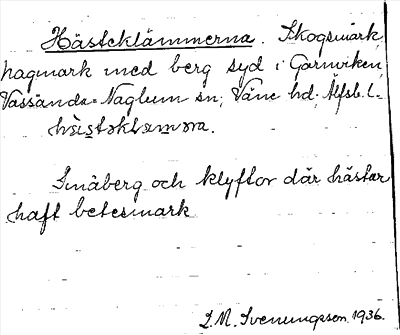 Hästeklämmerna. Skogsmark,
hagmark med berg syd i Gärnviken,
Vassända-Naglum sn, Väne hd, Älfsb. l.

Småberg och klyftor där hästar
haft betesmark
L. M. Svenungsson 1936.